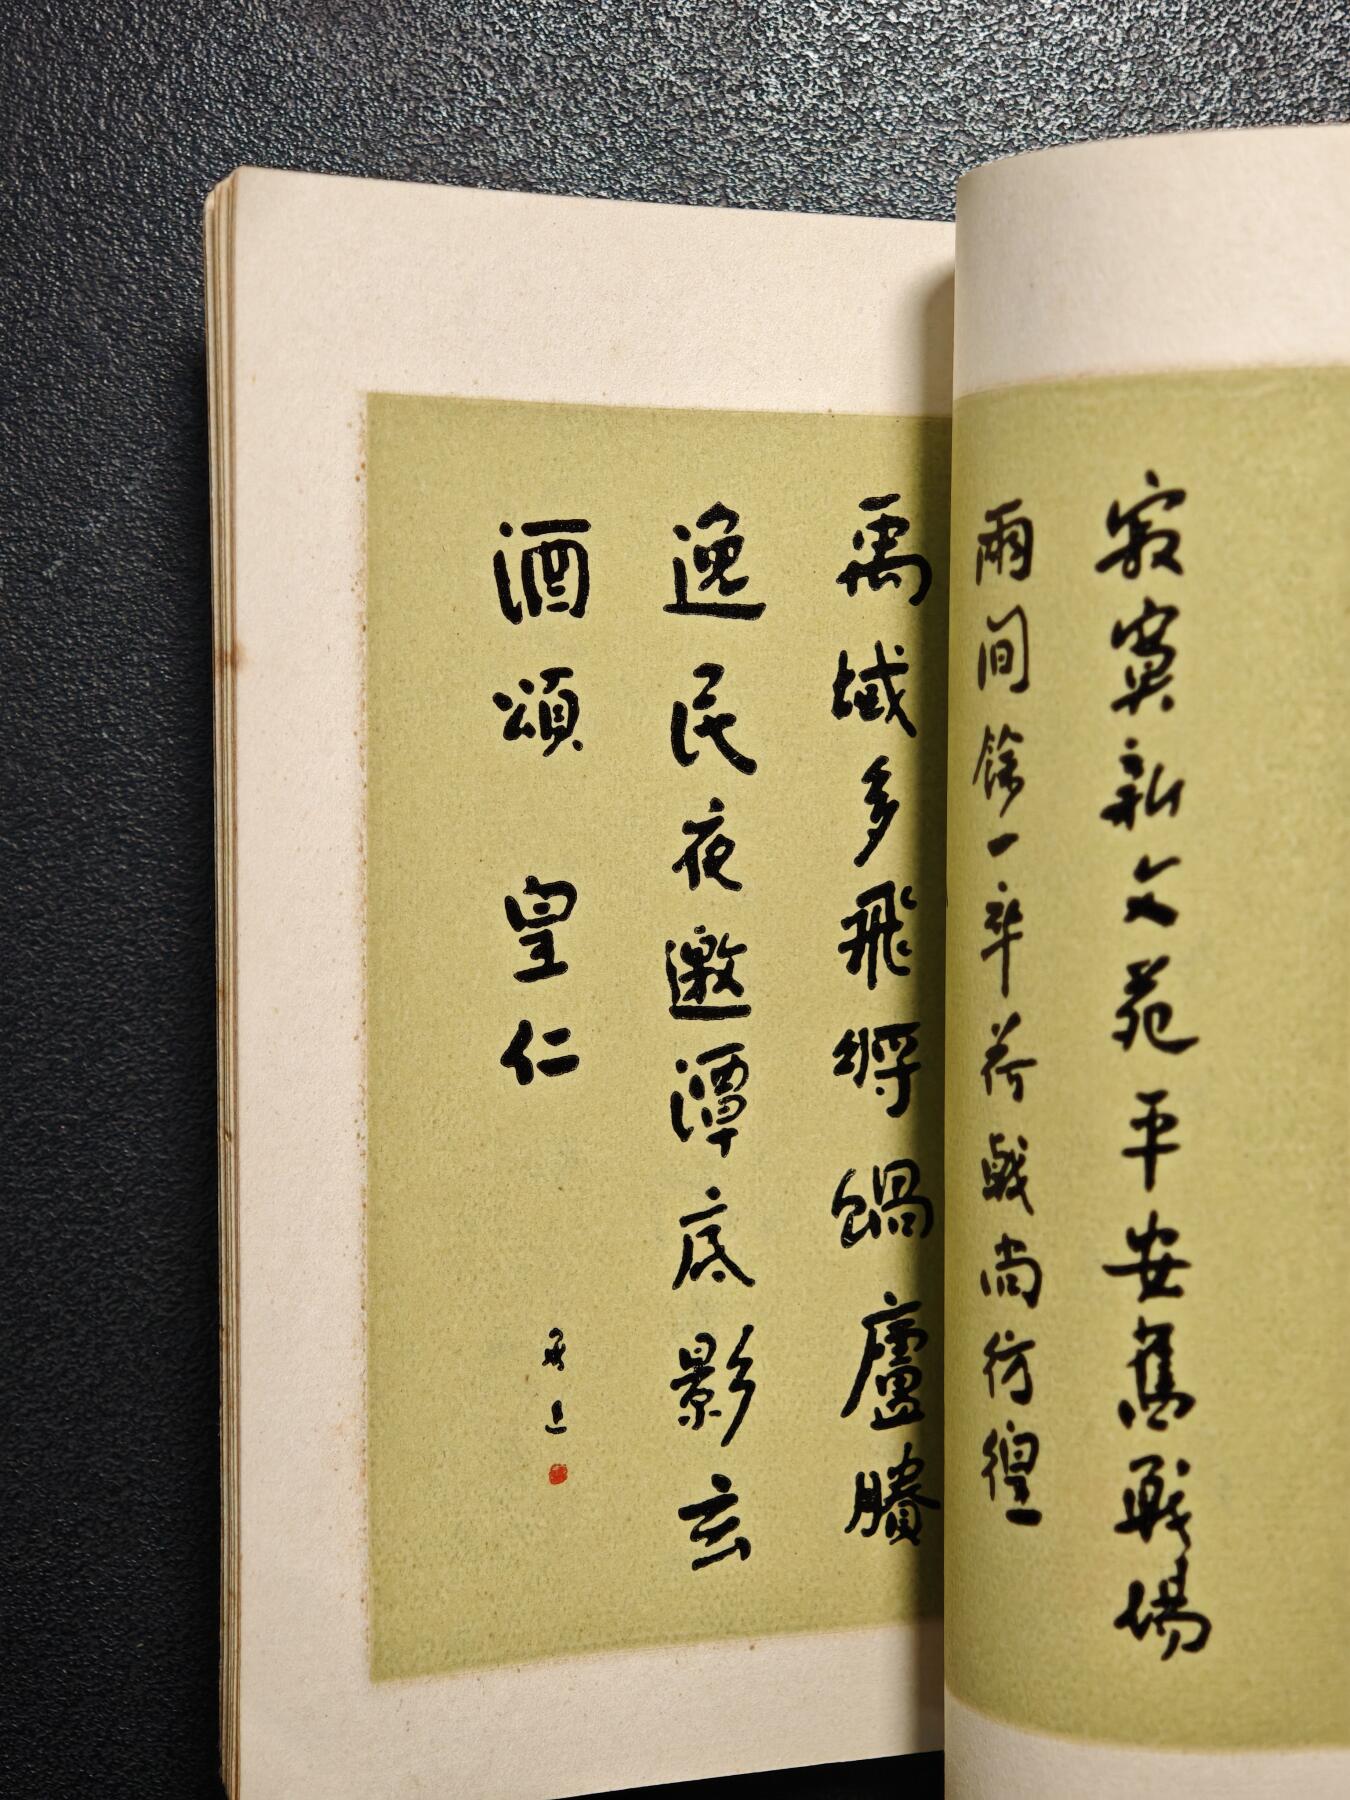 寂寞新文苑平安舊戰場
兩間餘一卒荷戟尚彷徨
禹域多飛將蝸廬賸
逸民夜邀潭底影玄
酒頌 皇仁
魯迅